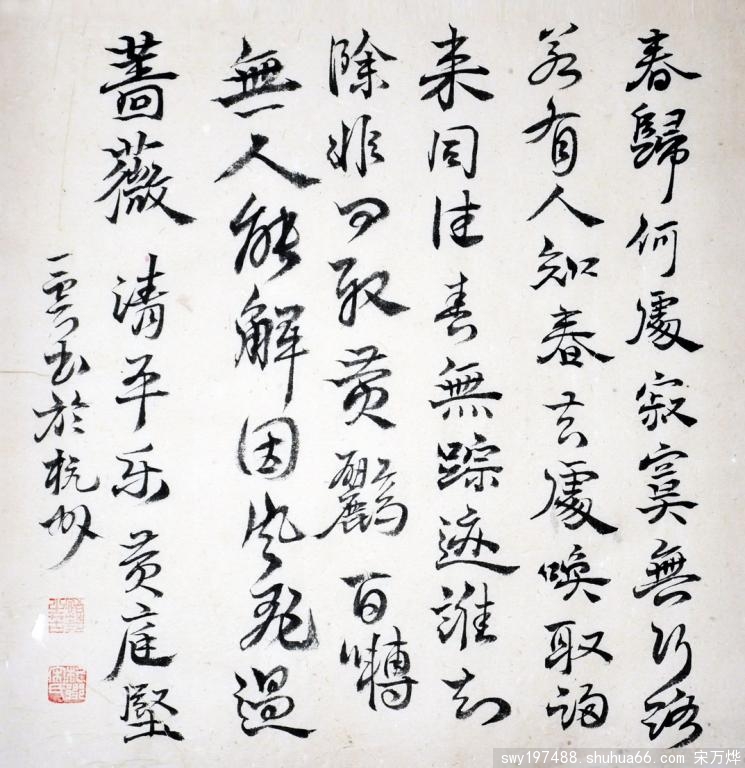 春歸何處寂寞無行路
若有人知春去處喚取歸
来同住春無踪迹誰知
除非问取黄鸝百囀
無人能解因风飛過
薔薇 清平乐 黄庭堅
一雲书於杭州
swy197488.shuhua66.com 宋万烨